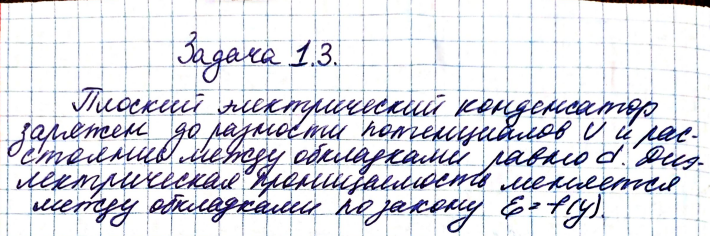 Задача 1.3.
Плоский электрический конденсатор
заряжен до разности потенциалов U и рас-
стояние между обкладками равно d. Диэ-
лектрическая проницаемость меняется
между обкладками по закону ε = f(y).